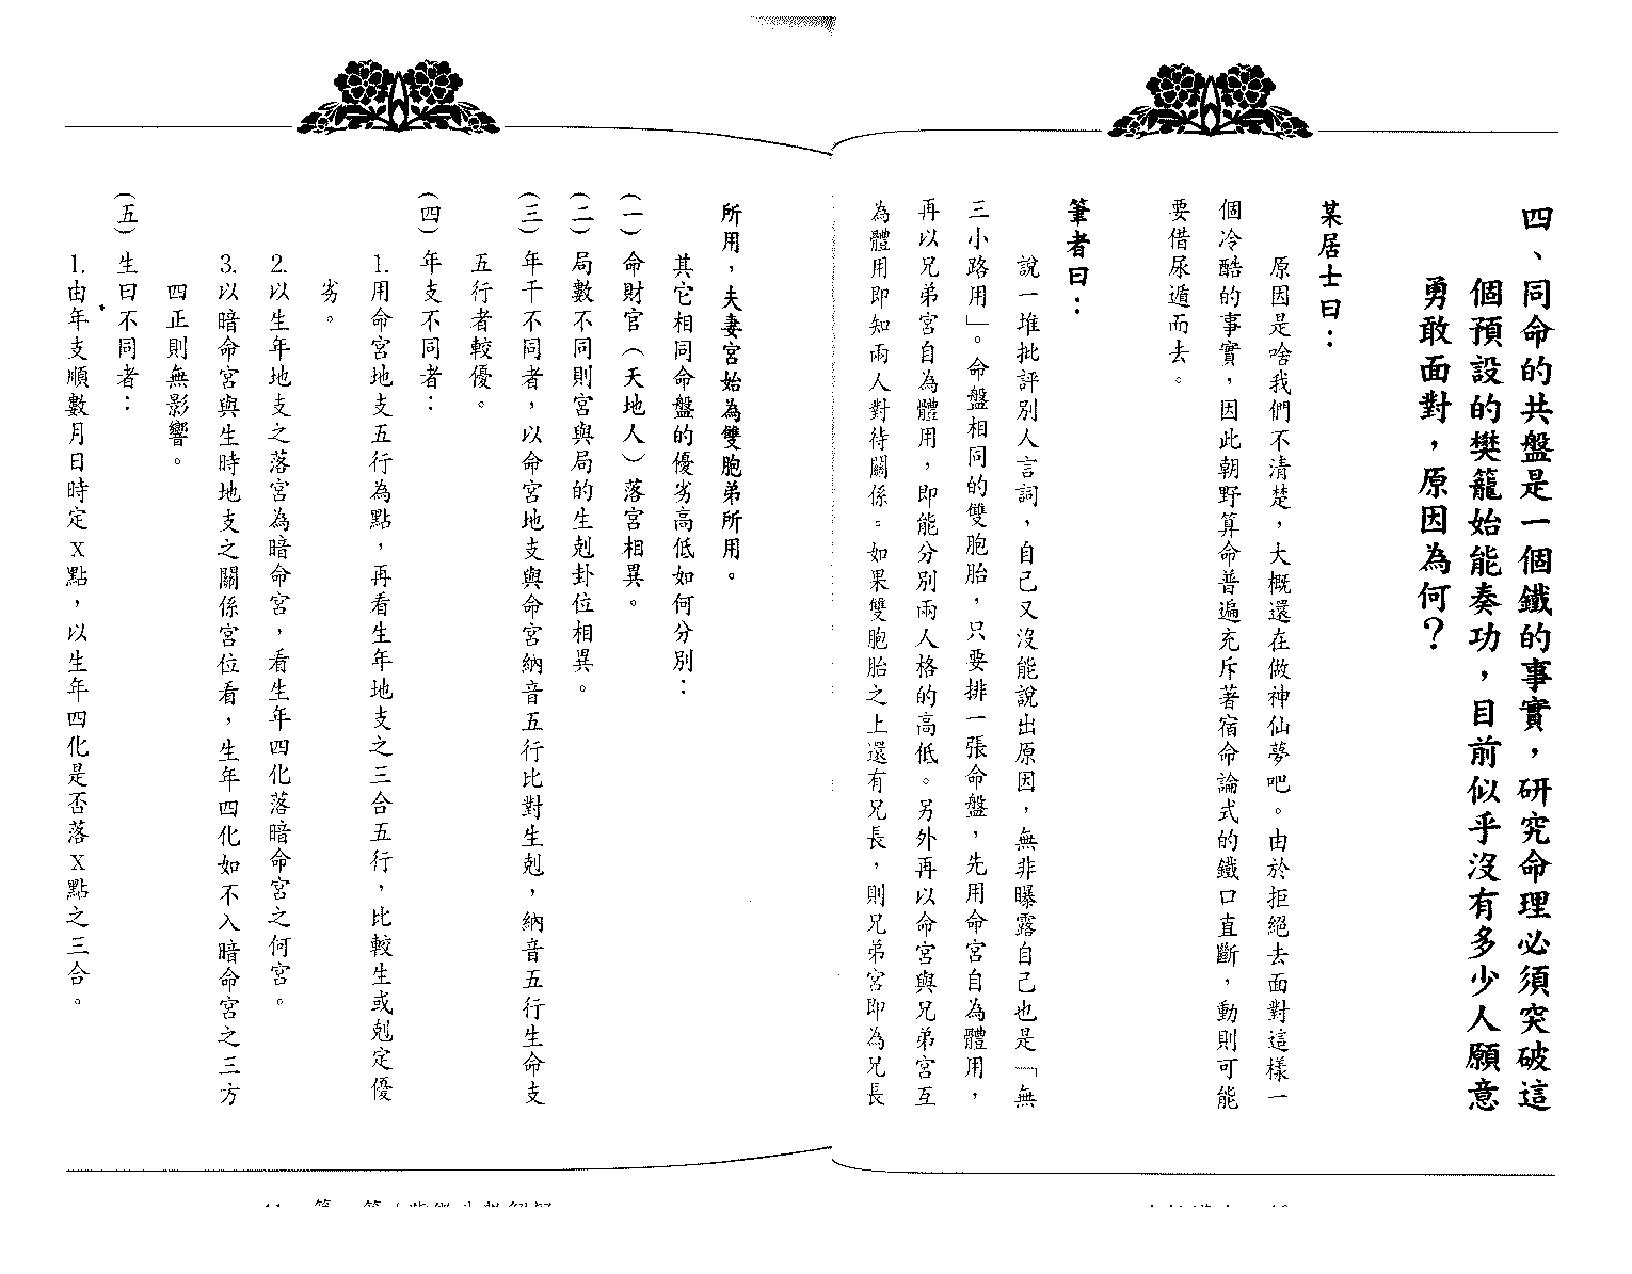 四、同命的共盤是一個鐵的事實，研究命理必須突破這
個預設的樊籠始能奏功，目前似乎沒有多少人願意
勇敢面對，原因為何？
某居士曰：
原因是啥我們不清楚，大概還在做神仙夢吧。由於拒絕去面對這樣一
個冷酷的事實，因此朝野算命普遍充斥著宿命論式的鐵口直斷，動則可能
要借尿遁而去。
筆者曰：
說一堆批評別人言詞，自己又沒能說出原因，無非曝露自己也是「無
三小路用」。命盤相同的雙胞胎，只要排一張命盤，先用命宮自為體用，
再以兄弟宮自為體用，即能分別兩人格的高低。另外再以命宮與兄弟宮互
為體用即知兩人對待關係。如果雙胞胎之上還有兄長，則兄弟宮即為兄長
所用，夫妻宮始為雙胞弟所用。
其它相同命盤的優劣高低如何分別：
(一)命財官（天地人）落宮相異。
(二)局數不同則宮與局的生剋卦位相異。
(三)年干不同者，以命宮地支與命宮納音五行比對生剋，納音五行生命支
五行者較優。
(四)年支不同者：
1.用命宮地支五行為點，再看生年地支之三合五行，比較生或剋定優
劣。
2.以生年地支之落宮為暗命宮，看生年四化落暗命宮之何宮。
3.以暗命宮與生時地支之關係宮位看，生年四化如不入暗命宮之三方
四正則無影響。
(五)生日不同者：
1.由年支順數月日時定X點，以生年四化是否落X點之三合。